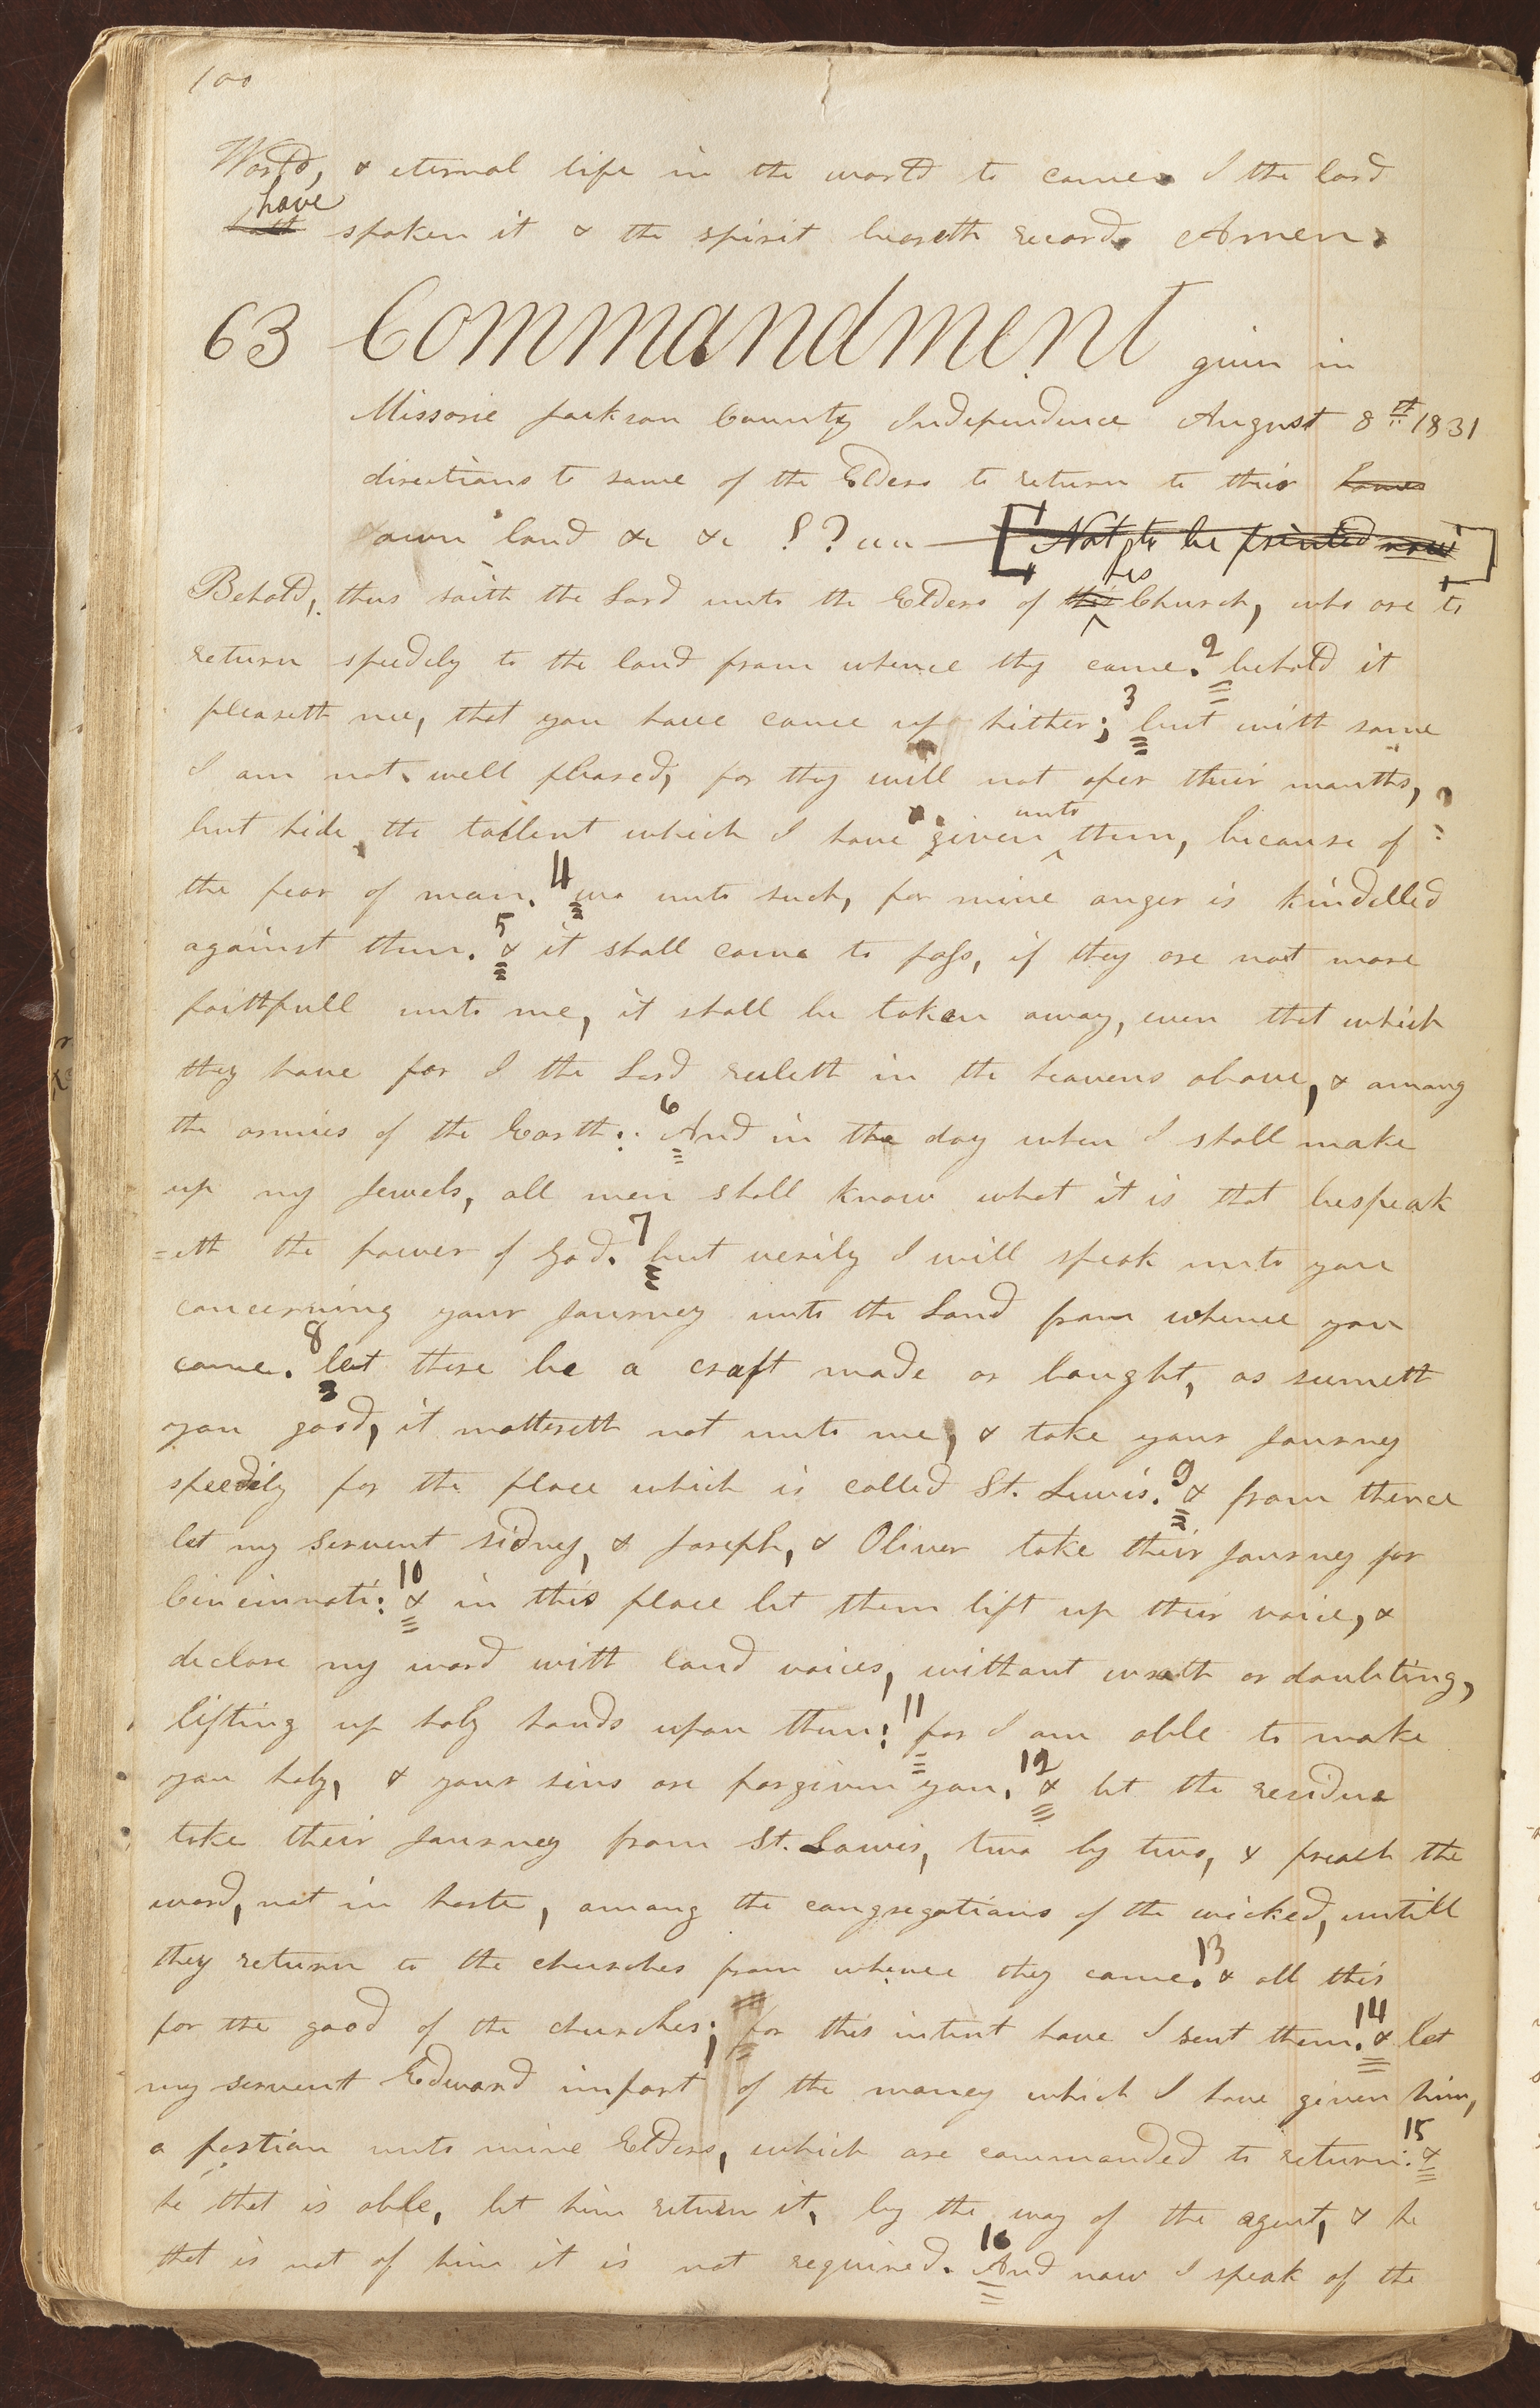 100
World, & eternal life in the world to come I the lord
have
hath spoken it & the spirit beareth record Amen.
63 Commandment given in
Missorie Jackson County Independence August 8th 1831
directions to some of the Elders to return to their homes
own land &c &c
[Not to be printed now]
his
Behold, thus saith the Lord unto the Elders of this Church, who are to
return speedily to the land from whence they came. 2 behold it
pleaseth me, that you have come up hither; 3 but with some
I am not well pleased, for they will not open their mouths,
unto
but hide the tallent which I have given ^ them, because of
the fear of man. 4 wo unto such, for mine anger is kindelled
against them. 5 & it shall come to pass, if they are not more
faithfull unto me, it shall be taken away, even that which
they have for I the Lord ruleth in the heavens above, & among
the armies of the Earth: 6 And in the day when I shall make
up my Jewels, all men shall know what it is that bespeak
=eth the power of God. 7 but verily I will speak unto you
concerning your Journey unto the Land from whence you
came. 8 let there be a craft made or bought, as seemeth
you good, it mattereth not unto me, & take your Journey
speedily for the place which is called St. Lewis. 9 & from thence
let my servent sidney, & Joseph, & Oliver take their Journey for
Cincinnati: 10 & in this place let them lift up their voice, &
declare my word with loud voices, without wrath or doubting,
lifting up holy hands upon them: 11 for I am able to make
you holy, & your sins are forgiven you. 12 & let the residue
take their Journey from St. Lowis, two by two, & preach the
word, not in haste, among the congregations of the wicked, untill
they return to the churches from whence they came. 13 & all this
for the good of the churches; for this intent have I sent them. 14 & let
my servent Edward impart of the money which I have given him,
a portion unto mine Elders, which are commanded to return: 15 &
he that is able, let him return it, by the way of the agent, & he
that is not of him it is not required. 16 And now I speak of the